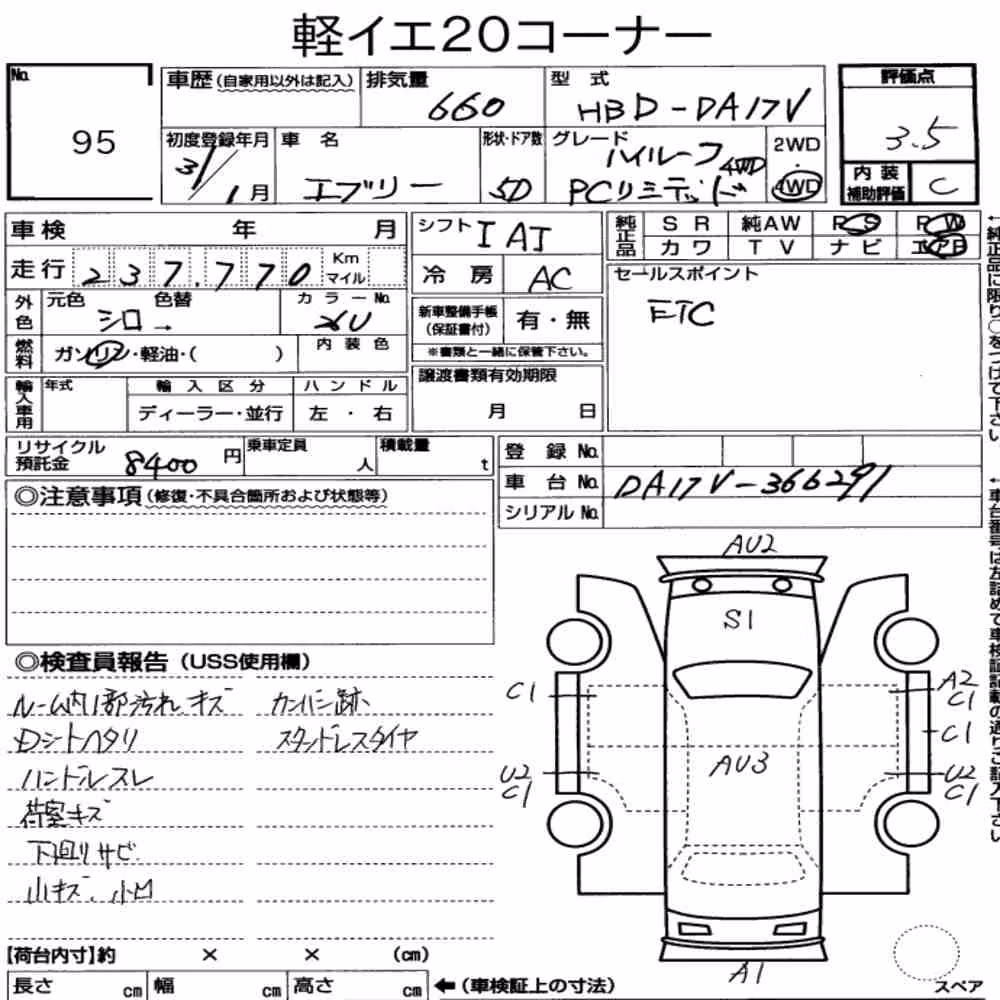 軽イエ20コーナー
No. 95
車歴(自家用以外は記入)
排気量 660
型式 HBD-DA17V
評価点 3.5
初度登録年月 3/1月
車名 エブリー
形状・ドア数 5D
グレード ハイルーフ 4WD
PCリミテッド
2WD
・
4WD
内装補助評価 C
車検 年 月
走行 237,770 Km マイル
外色 元色 シロ→ 色替 カラーNo. 26U
燃料 ガソリン・軽油・( ) 内装色
輸入車用 年式 輸入区分 ハンドル
ディーラー・並行 左・右
シフト IAT
冷房 AC
新車整備手帳(保証書付) 有・無
※書類と一緒に保管下さい。
譲渡書類有効期限
月 日
純正品 SR 純AW PS PW
カワ TV ナビ エアB
セールスポイント
ETC
←純正品に限り○をつけて下さい
リサイクル預託金 8400円
乗車定員 人
積載量 t
登録No.
車台No. DA17V-366291
シリアルNo.
←車台番号は左詰めで車検証記載の通りご記入下さい
◎注意事項(修復・不具合箇所および状態等)
◎検査員報告(USS使用欄)
ルーム内1部汚れ、キズ カンバン跡
Dシートヘタリ スタッドレスタイヤ
ハンドルスレ
荷室キズ
下廻りサビ
小キズ、小凹
AU2
S1
C1
A2
C1
C1
AU3
U2
C1
U2
C1
A1
スペア
【荷台内寸】約 × × (cm)
長さ cm 幅 cm 高さ cm ←(車検証上の寸法)